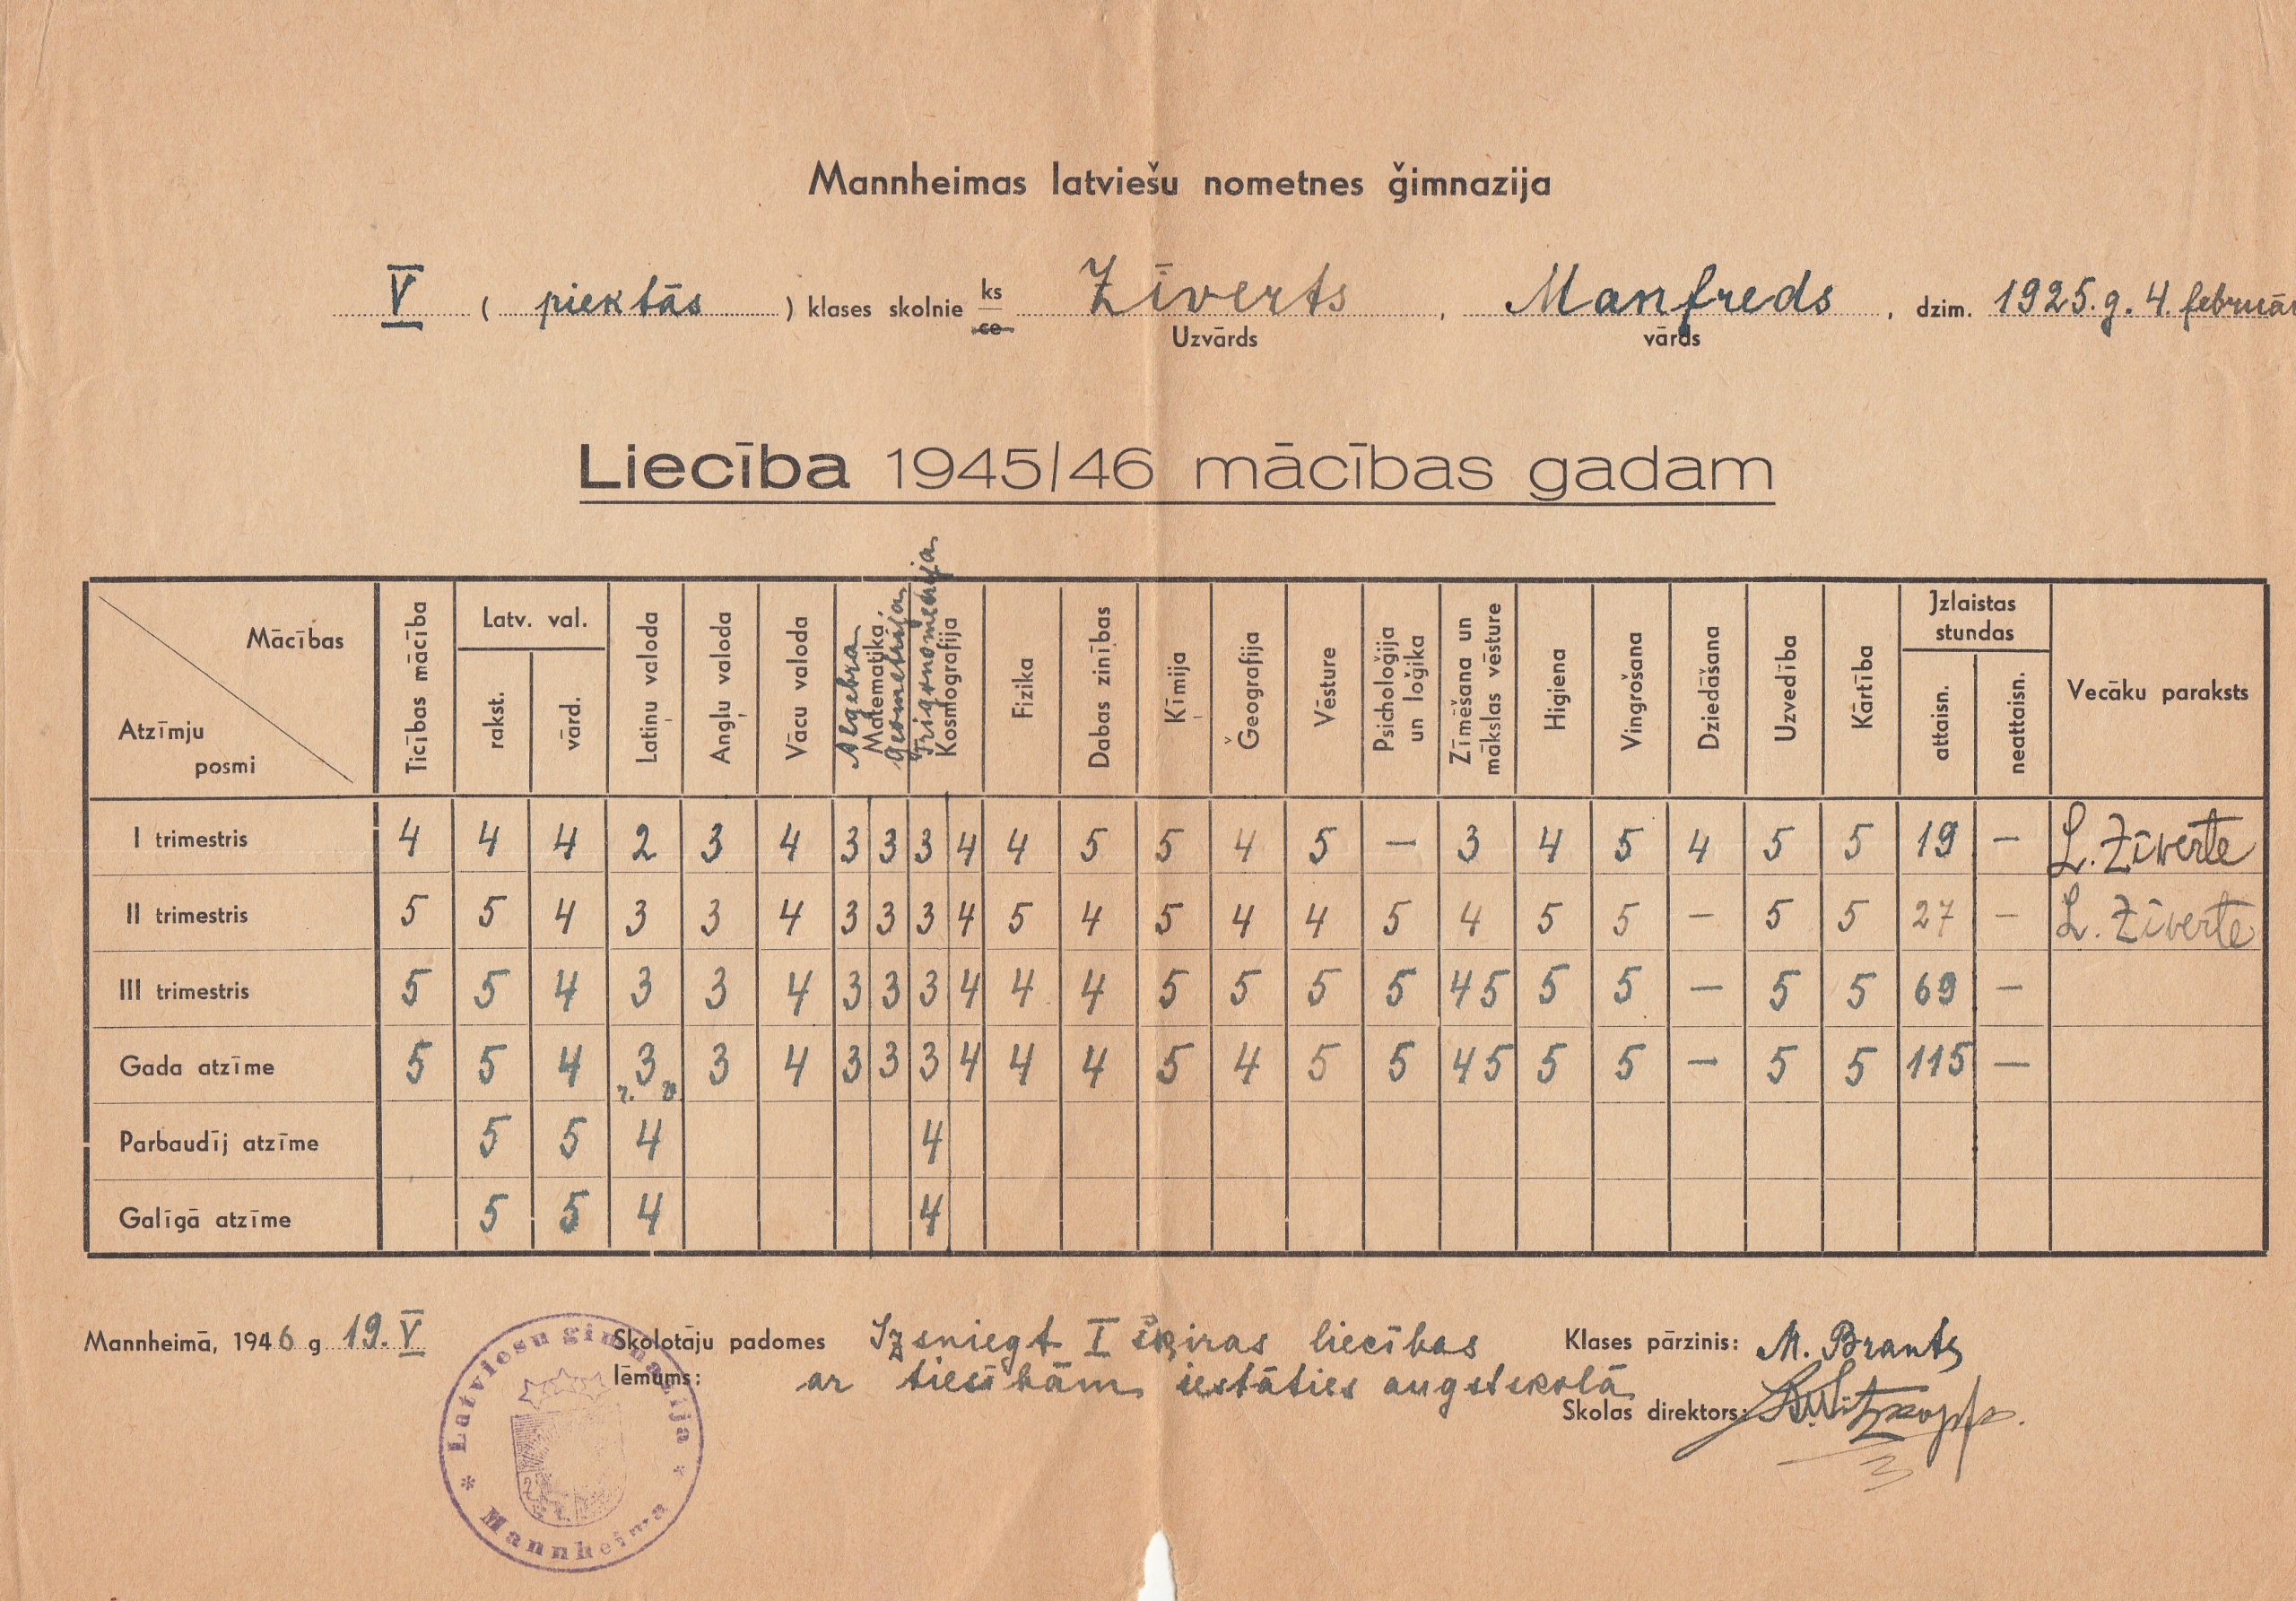 Mannheimas latviešu nometnes ğimnazija
V ( piektās ) klases skolnie ks Zīverts , Manfreds , dzim. 1925. g. 4. februār
ce Uzvārds vārds
Liecība 1945/46 mācības gadam
Mācības
Atzīmju posmi
Ticības mācība
Latv. val.
rakst.
vārd.
Latiņu valoda
Angļu valoda
Vācu valoda
Algebra
Matematika,
Geometrija
Trigonometrija
Kosmografija
Fizika
Dabas zinības
Ķīmija
Ğeografija
Vēsture
Psicholoģija un loģika
Zīmēšana un mākslas vēsture
Higiena
Vingrošana
Dziedāšana
Uzvedība
Kārtība
Izlaistas stundas
attaisn.
neattaisn.
Vecāku paraksts
I trimestris 4 4 4 2 3 4 3 3 3 4 4 5 5 4 5 — 3 4 5 4 5 5 19 — L. Zīverte
II trimestris 5 5 4 3 3 4 3 3 3 4 5 4 5 4 4 5 4 5 5 — 5 5 27 — L. Zīverte
III trimestris 5 5 4 3 3 4 3 3 3 4 4 4 5 5 5 5 4 5 5 5 — 5 5 69 —
Gada atzīme 5 5 4 3 3 4 3 3 3 4 4 4 5 4 5 5 4 5 5 5 — 5 5 115 —
Parbaudīj atzīme 5 5 4 4
Galīgā atzīme 5 5 4 4
Mannheimā, 1946 g 19. V
Skolotāju padomes lēmums: Izsniegt I šķiras liecības
ar tiesībām iestāties augstskolā
Klases pārzinis: M. Brants
Skolas direktors:
Latviešu ģimnazija
* Mannheima *